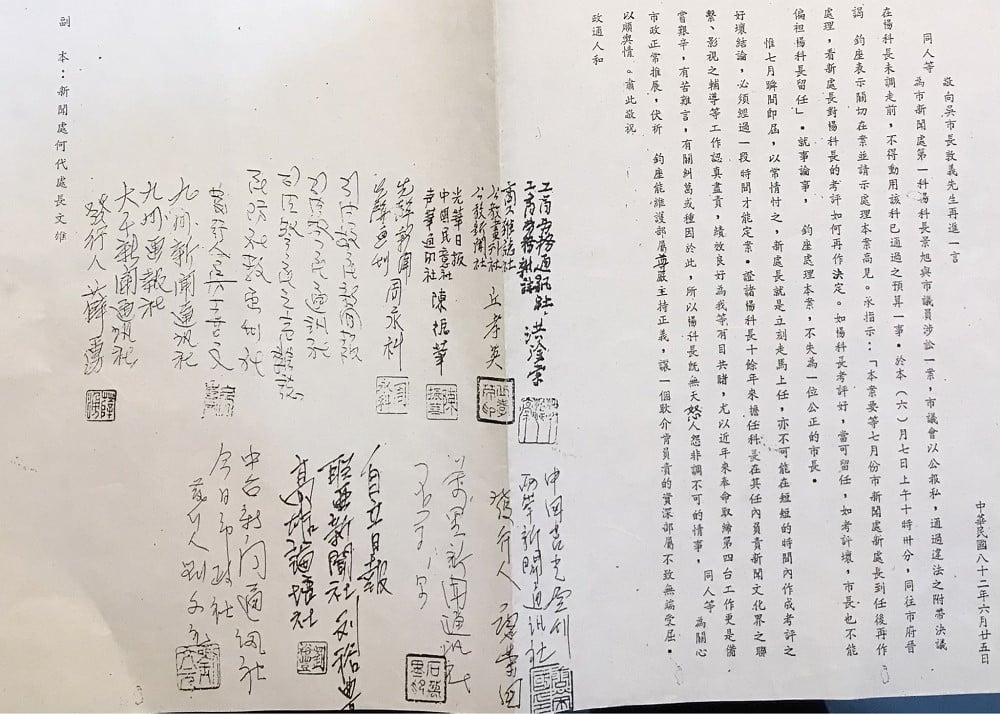 中華民國八十二年六月廿五日
敬向吳市長敦義先生再進一言
同人等　為市新聞處第一科楊科長景旭與市議員涉訟一案，市議會以公報私，通過違法之附帶決議
在楊科長未調走前，不得動用該科已通過之預算一事。於本（六）月七日上午十時卅分，同往市府晉
謁　鈞座表示關切在案並請示處理本案高見。承指示：「本案要等七月份市新聞處新處長到任後再作
處理，看新處長對楊科長的考評如何再作決定。如楊科長考評好，當可留任，如考評壞，市長也不能
偏袒楊科長留任」。就事論事，　鈞座處理本案，不失為一位公正的市長。
惟七月瞬間即屆，以常情忖之，新處長就是立刻走馬上任，亦不可能在短短的時間內作成考評之
好壞結論，必須經過一段時間才能定案。證諸楊科長十餘年來擔任科長在其任內負責新聞文化界之聯
繫、影視之輔導等工作認真盡責，績效良好為我等有目共睹，尤以近年來奉命取締第四台工作更是備
嘗艱辛，有苦難言，有關糾葛或種因於此，所以楊科長既無天怒人怨非調不可的情事，　同人等　為關心
市政正常推展，伏祈　鈞座能維護部屬尊嚴主持正義，讓一個耿介肯負責的資深部屬不致無端受屈。
以順輿情。肅此敬祝
政通人和
工商勞務通訊社
工商勞務雜誌
洪
商工雜誌社
公教畫刊社
公教新聞社
丘孝英
光華日報
中國民意社
春華通訊社
陳振華
先鋒新聞
先鋒畫刊
周永科
九州新聞通訊社
九州畫報社
大千新聞通訊社
發行人　薛勇
發行人
萬里新聞通訊社
自立日報
聯亞新聞社
高雄論壇社
中台新聞通訊社
今日市政社
發行人　劉文
副本：新聞處何代處長文雄